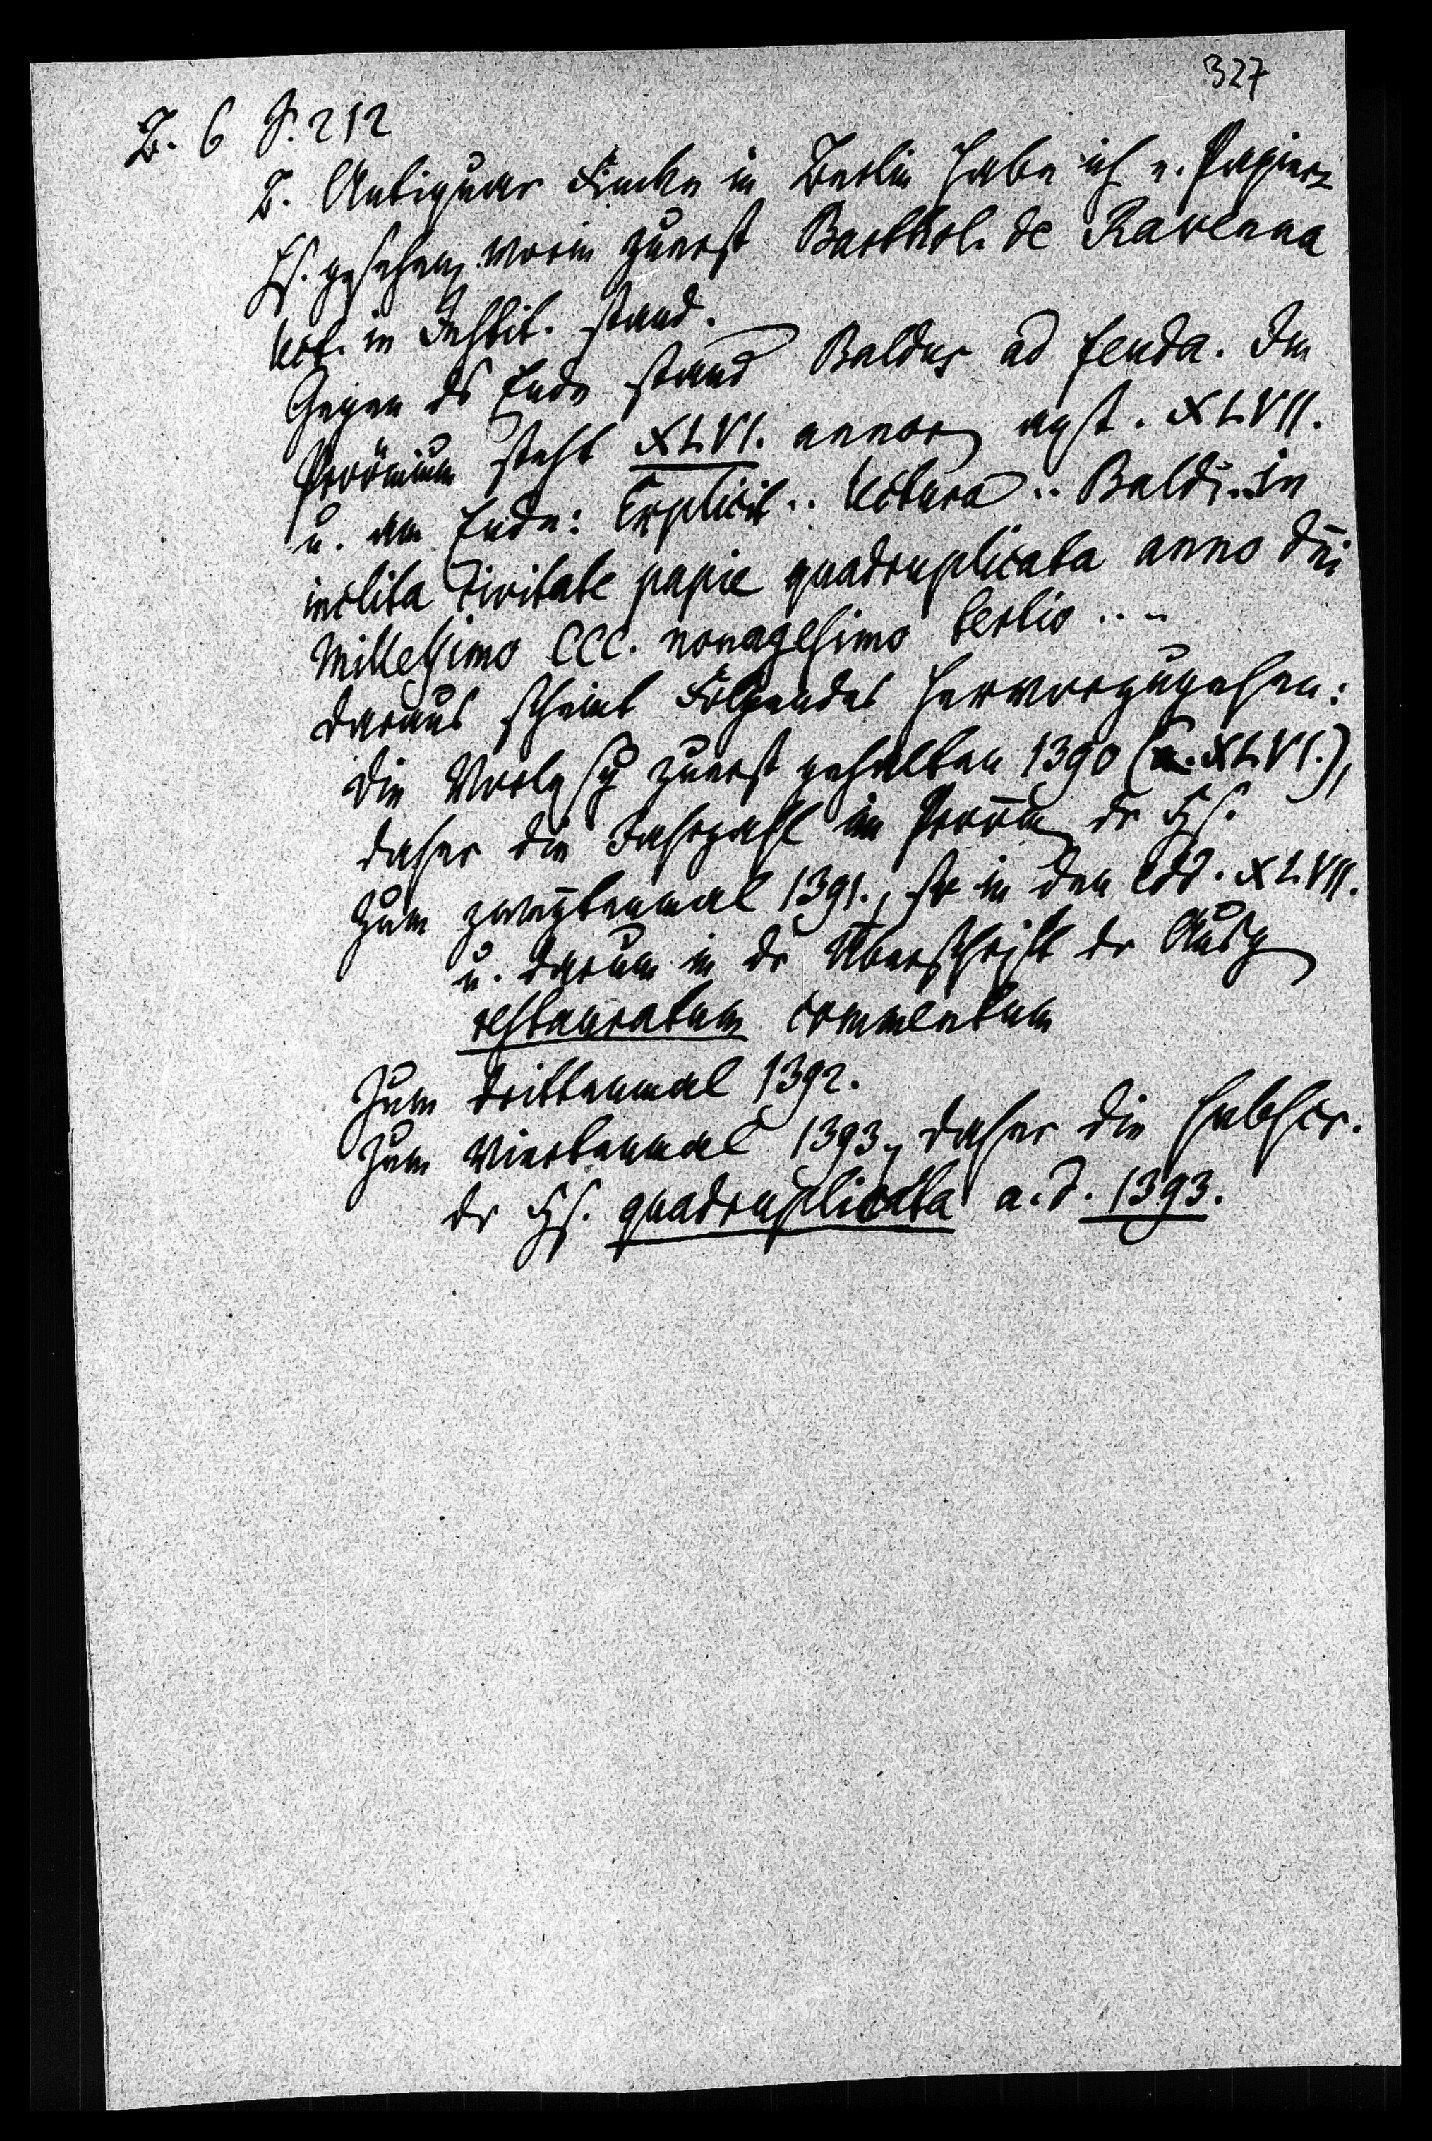 327
B. 6 S. 212
B. Antiquar Finke in Berlin habe ich e. Papier
Hs. gesehen, worin zuerst Barthol. de Ravenna
lect. in Instit. stand.
Gegen ds Ende stand Baldus ad feuda. Im
Proömium steht XLVI. annor, anst. XLVII.
u. am Ende: Explicit .. lectura .. Baldi .. in
inclita civitate papie quadruplicata anno dni
Millessimo CCC. nonagesimo tertio ...
Daraus scheint Folgendes hervorzugehen:
die Vorlesg zuerst gehalten 1390 (XLVI.),
daher die Jahrzahl im Proöm. dr Hs.
zum zweytenmal 1391., so in den Edd. XLVII.
u. darum in dr Überschrift dr Ausg
restauratum commentum
Zum drittenmal 1392.
Zum viertenmal 1393, daher die subscr.
dr Hs. quadruplicata a. d. 1393.